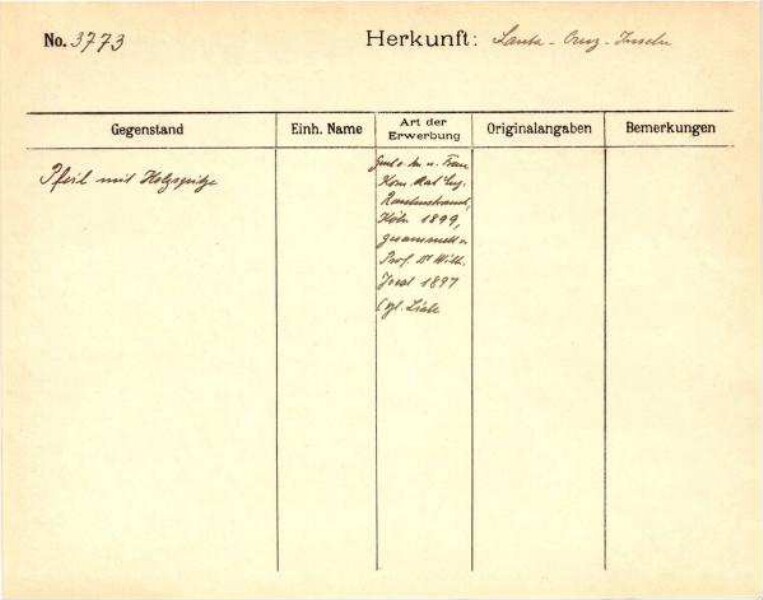 No. 3773 Herkunft: Santa-Cruz-Inseln
Gegenstand Einh. Name Art der Erwerbung Originalangaben Bemerkungen
Pfeil mit Holzspitze
Gesch. v. u. Frau
Kom. Rat Eug.
Rautenstrauch,
Köln 1899,
gesammelt v.
Prof. Dr Wilh.
Joest 1897
(vgl. Liste